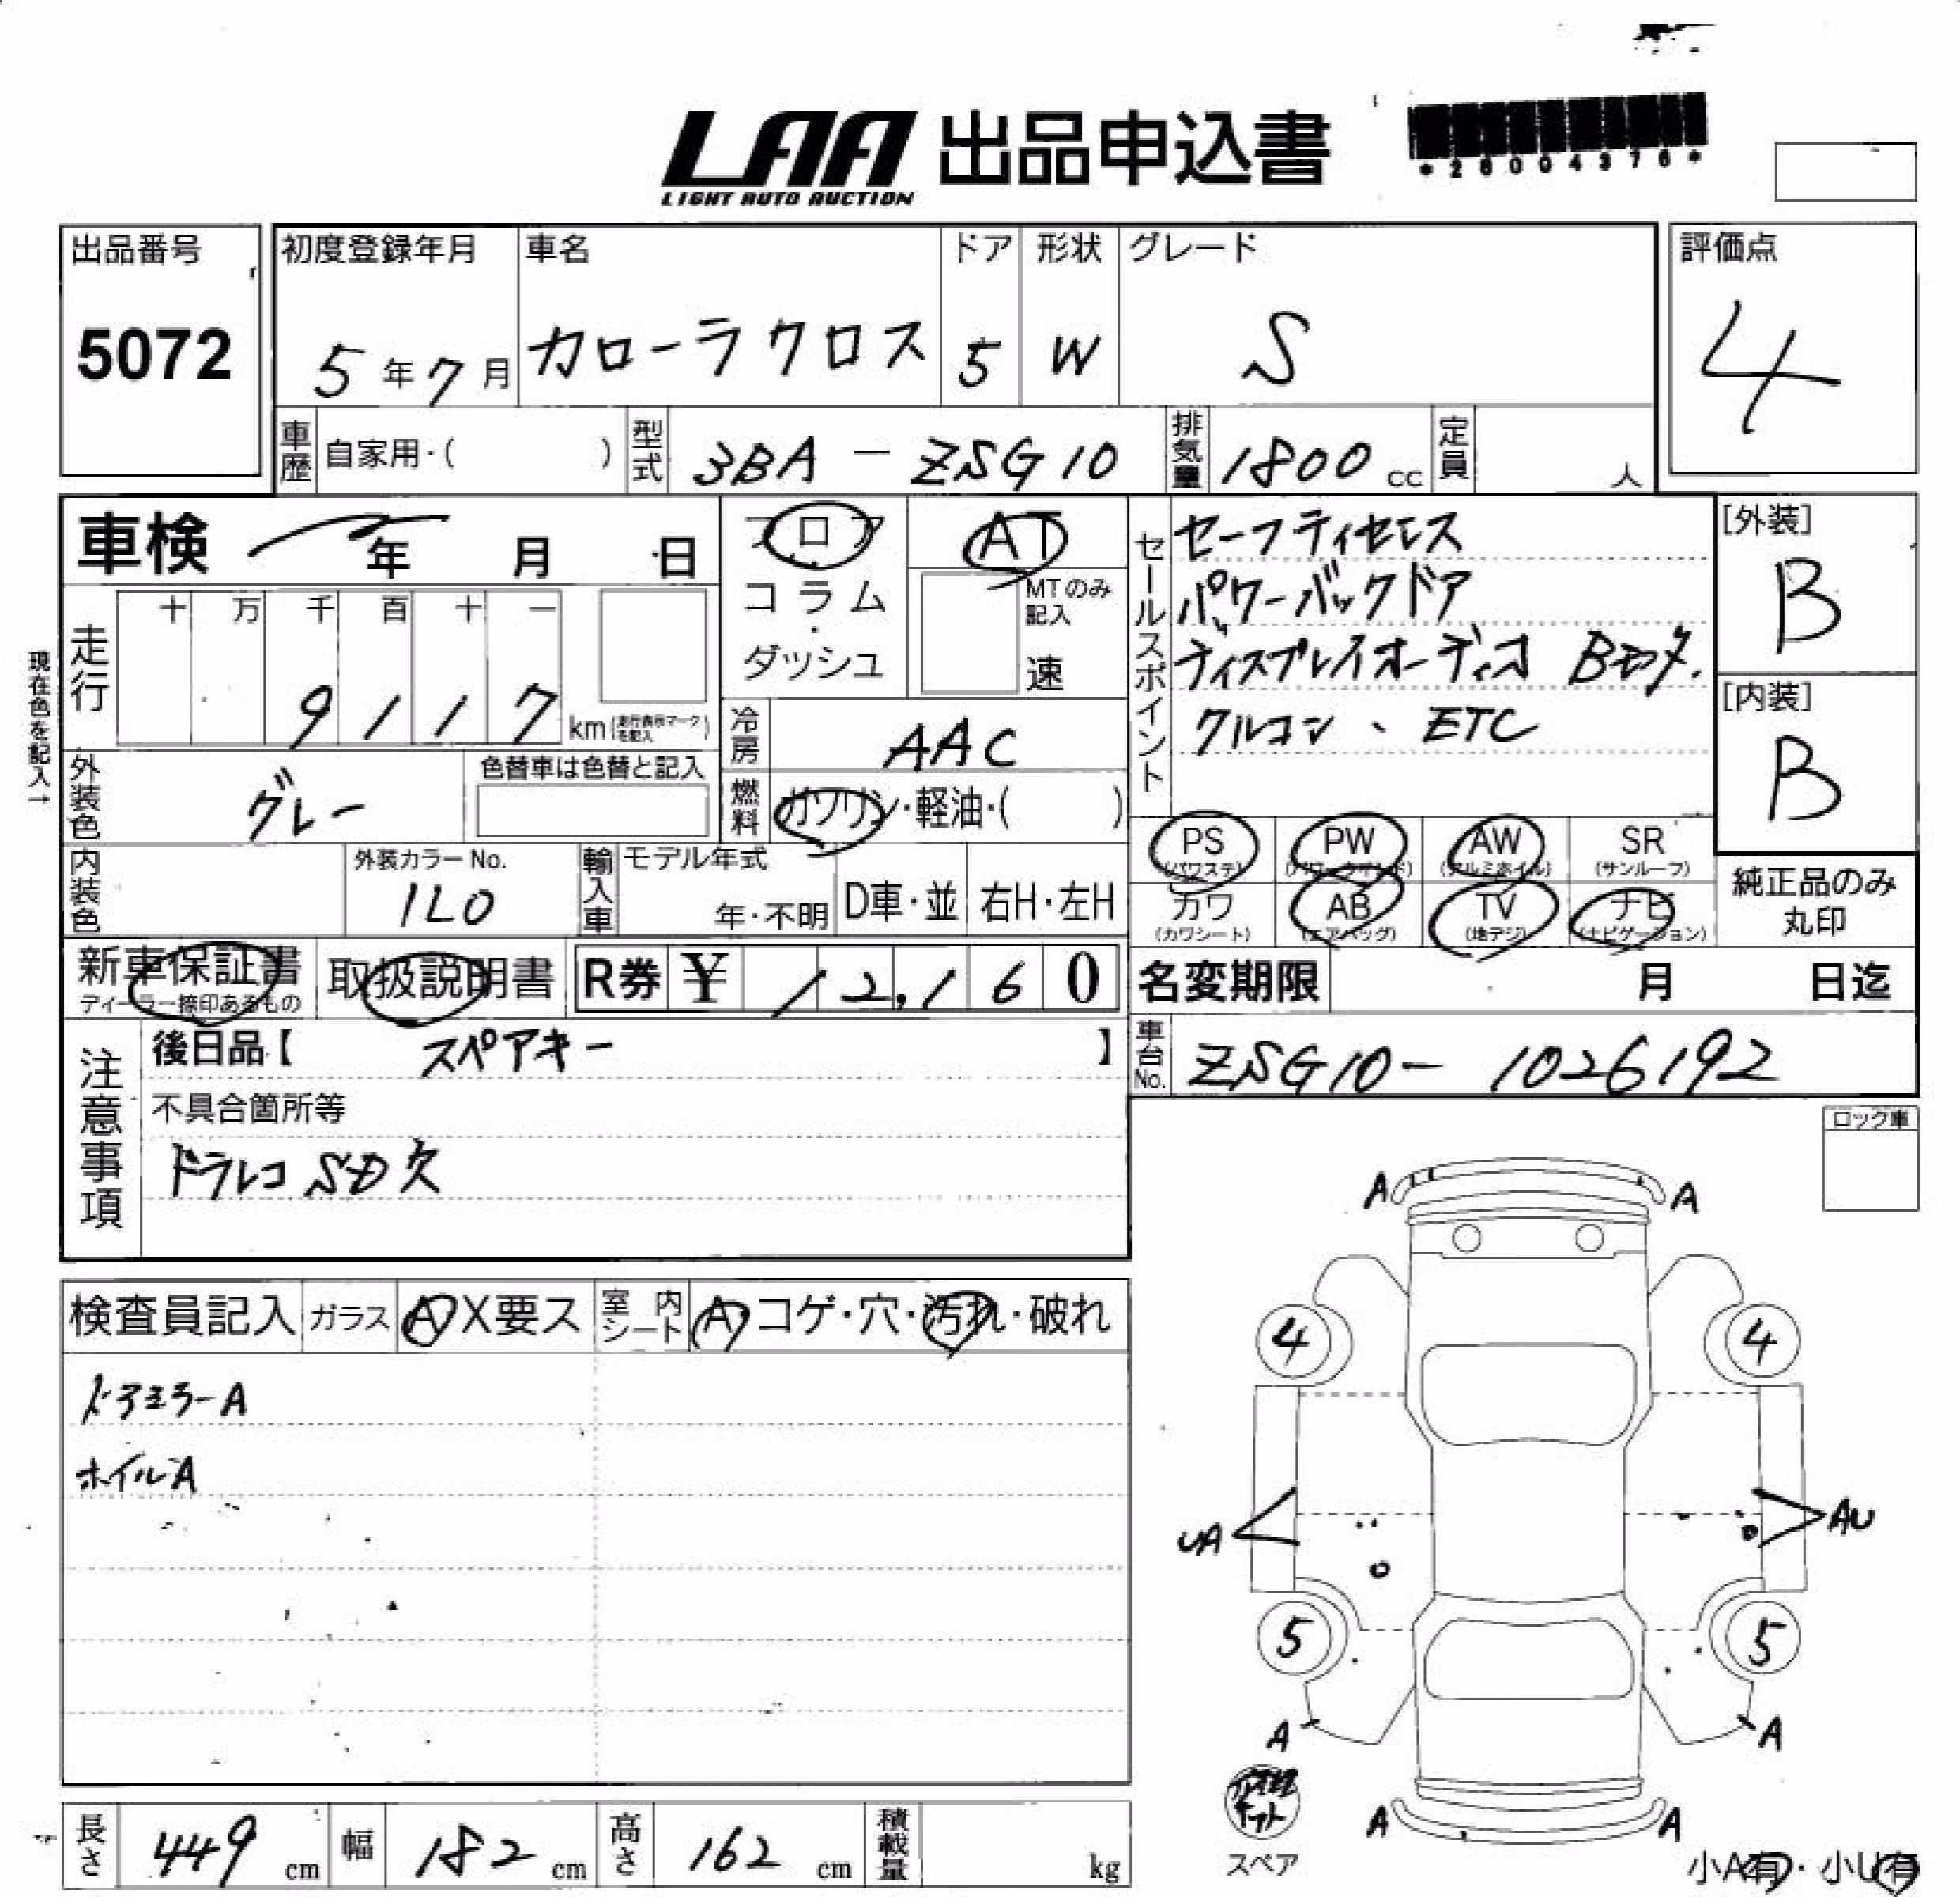 LAA 出品申込書
LIGHT AUTO AUCTION
*26004376*
出品番号
5072
初度登録年月
5年7月
車名
カローラクロス
ドア
5
形状
W
グレード
S
評価点
4
車歴 自家用・( )
型式 3BA-ZSG10
排気量 1800cc
定員 人
車検 年 月 日
フロア・
コラム・
ダッシュ
AT
MTのみ記入
速
現在色を記入→
走行
十 万 千 百 十 一
9 1 1 7 km(走行表示マークを記入)
外装色 グレー
色替車は色替と記入
冷房 AAC
燃料 ガソリン・軽油・( )
内装色
外装カラーNo.
1L0
輸入車
モデル年式
年・不明
D車・並
右H・左H
セールスポイント
セーフティセンス
パワーバックドア
ディスプレイオーディオ Bモク.
クルコン、ETC
[外装]
B
[内装]
B
PS (パワステ)
PW (パワーウインド)
AW (アルミホイル)
SR (サンルーフ)
カワ (カワシート)
AB (エアバッグ)
TV (地デジ)
ナビ (ナビゲーション)
純正品のみ
丸印
新車保証書
ディーラー捺印あるもの
取扱説明書
R券 ¥ 12,160
名変期限 月 日迄
車台No. ZSG10-1026192
注意事項
後日品【 スペアキー 】
不具合箇所等
ドラレコ SD欠
ロック車
検査員記入
ガラス A X要ス
室内シート A・コゲ・穴・汚れ・破れ
ドアミラーA
ホイルA
A A
4 4
UA AU
5 5
A A
A A
スペア
小A有・小U有
長さ 449 cm
幅 182 cm
高さ 162 cm
積載量 kg